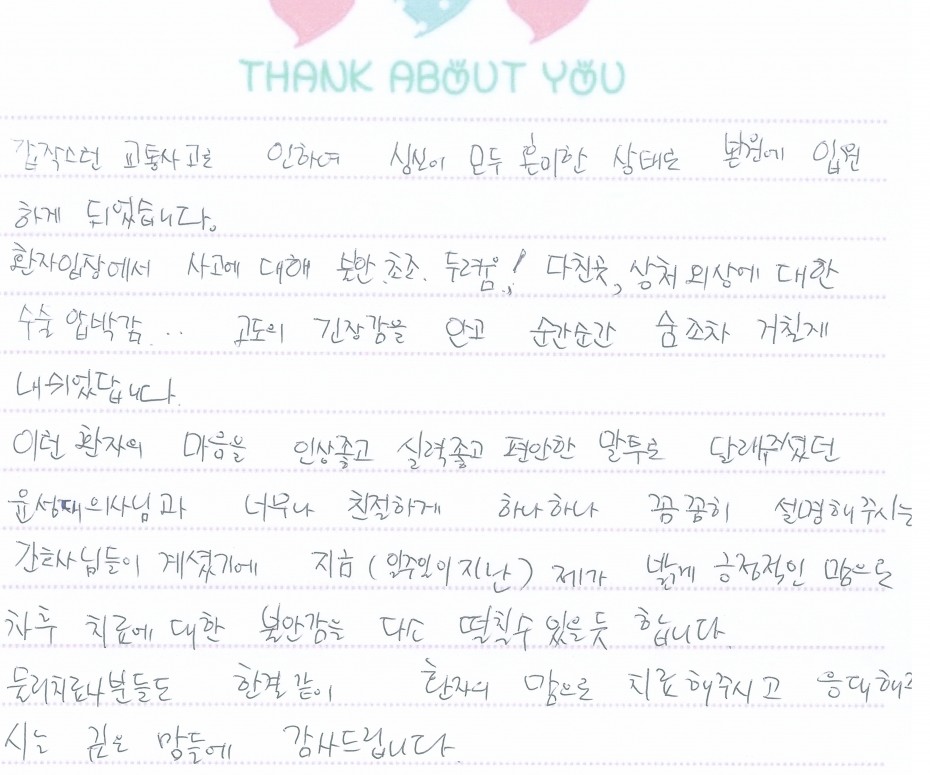 THANK ABOUT YOU
갑작스런 교통사고로 인하여 심신이 모두 혼미한 상태로 본원에 입원
하게 되었습니다.
환자입장에서 사고에 대해 불안.초조. 두려움,! 다친곳, 상처 외상에 대한
수술 압박감.. 고도의 긴장감을 안고 순간순간 숨조차 거칠게
내쉬었답니다.
이런 환자의 마음을 인상좋고 실력좋고 편안한 말투로 달래주셨던
윤성대의사님과 너무나 친절하게 하나하나 꼼꼼히 설명해주시는
간호사님들이 계셨기에 지금 (일주일이지난) 제가 밝게 긍정적인 맘으로
차후 치료에 대한 불안감을 다소 떨칠수 있을듯 합니다.
물리치료사분들도 한결같이 환자의 맘으로 치료해주시고 응대해주
시는 깊은 맘들에 감사드립니다.